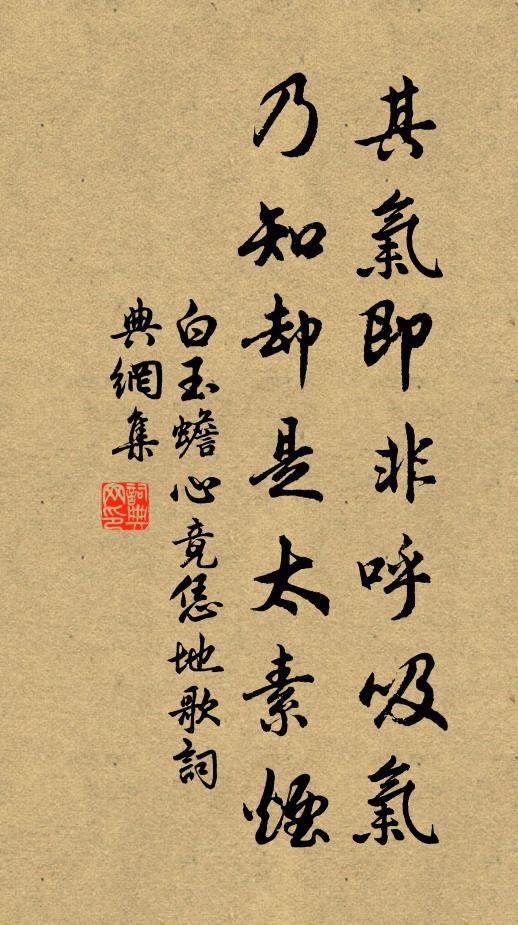 其氣即非呼吸氣
乃知却是太素煙
白玉蟾心竟恁地歌詞
典網集
詞典
网印